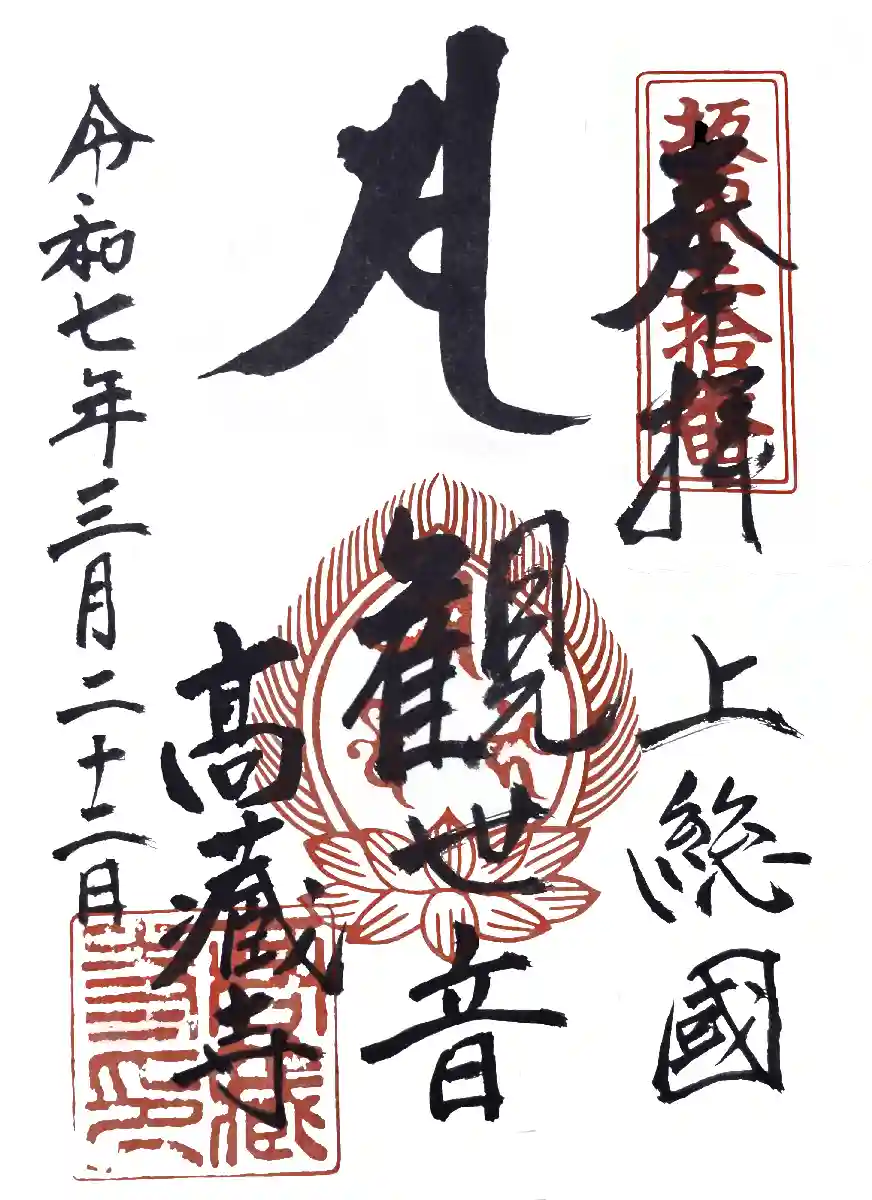 奉拝
坂東三拾番
上総國
サ
観世音
高蔵寺
令和七年三月二十二日